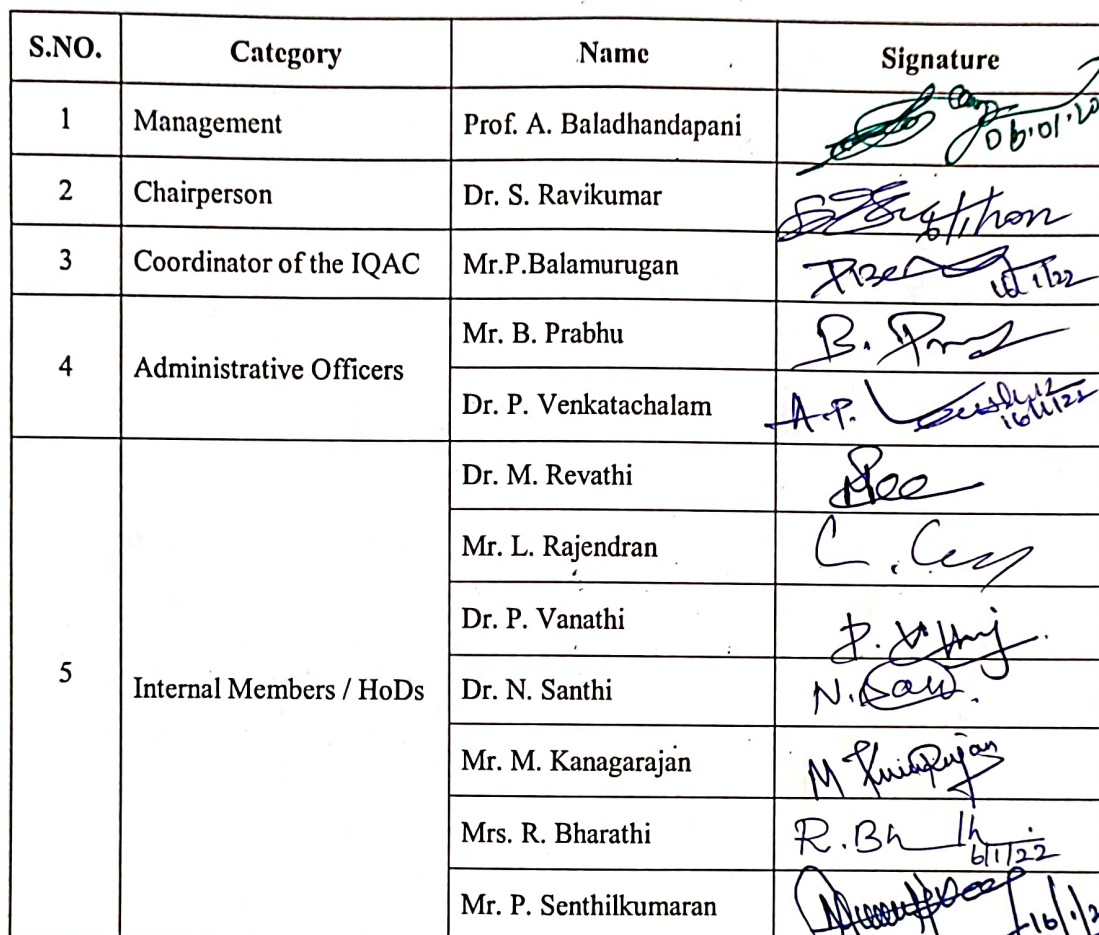 S.NO. Category Name Signature
1 Management Prof. A. Baladhandapani
06.01.20
2 Chairperson Dr. S. Ravikumar
3 Coordinator of the IQAC Mr.P.Balamurugan
4 Administrative Officers Mr. B. Prabhu
B.
Dr. P. Venkatachalam
A.P.
5 Internal Members / HoDs Dr. M. Revathi
Mr. L. Rajendran
Dr. P. Vanathi
Dr. N. Santhi
N.
Mr. M. Kanagarajan
M
Mrs. R. Bharathi
R.Bh
6/1/22
Mr. P. Senthilkumaran